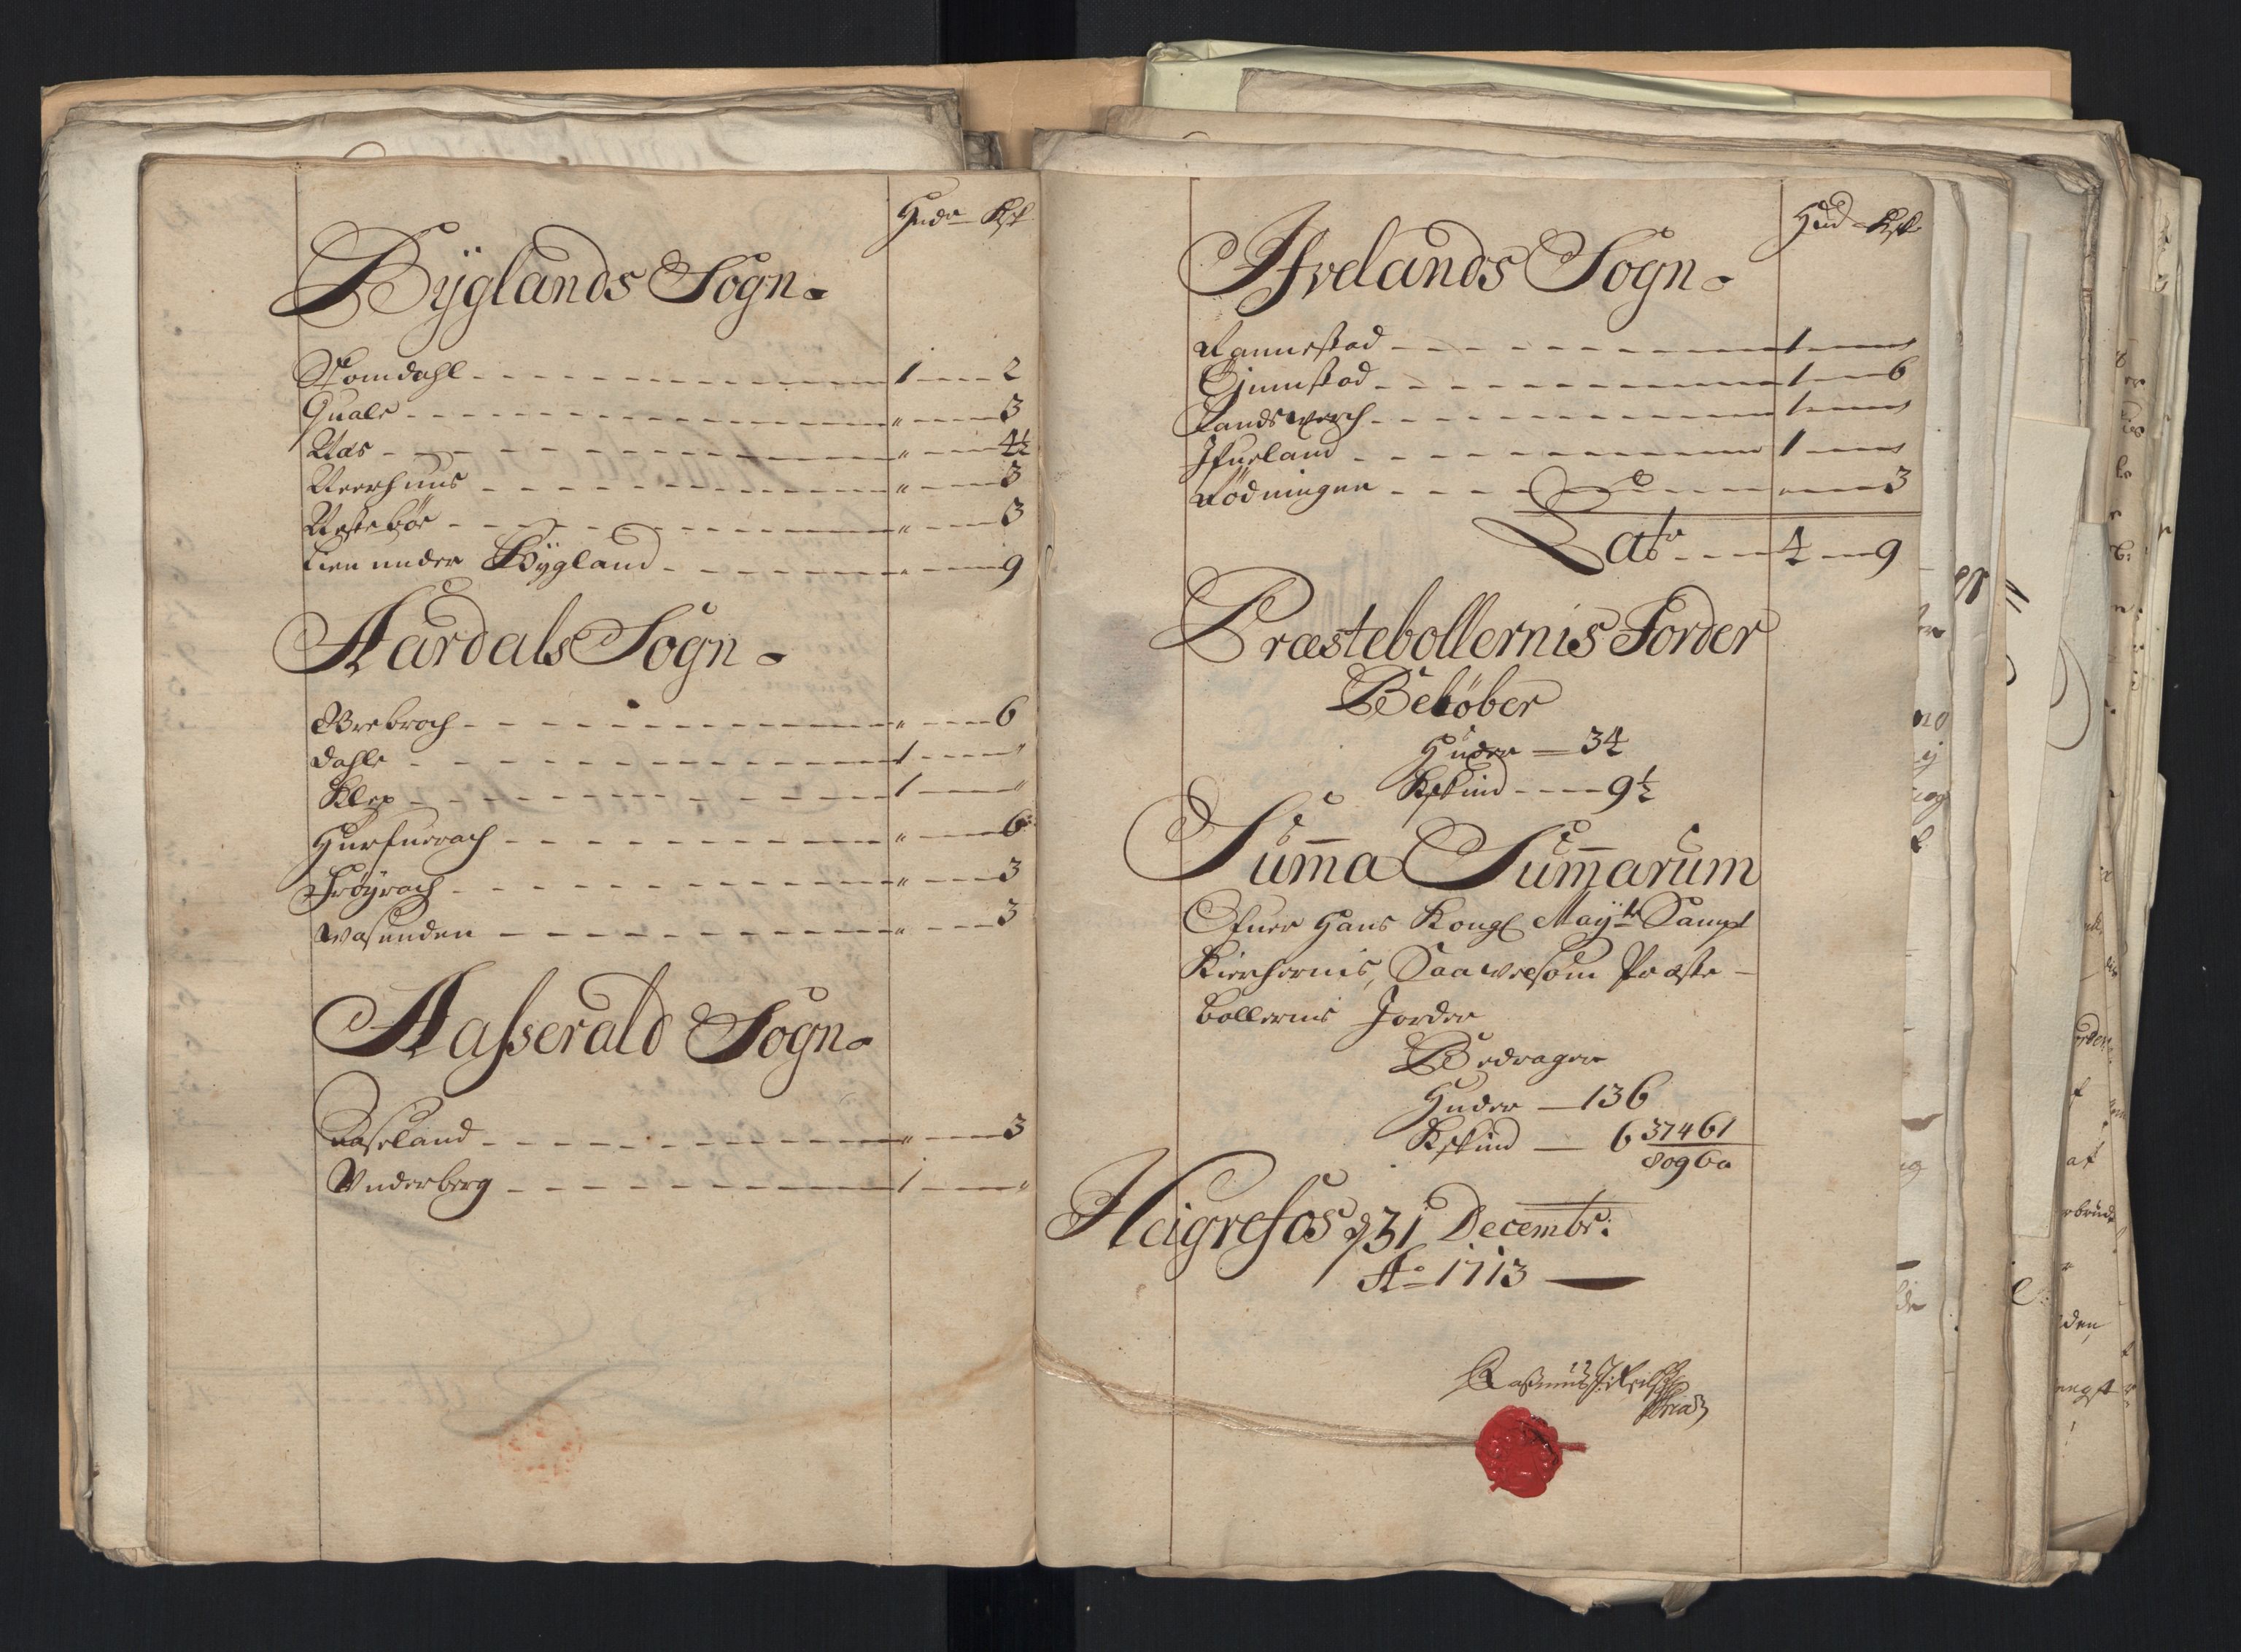 Hudr Ksk
Byglands Sogn.
Stomdahl 1 2
Quale " 3
Næs " 4½
Neerhuus " 3
Nestebøe " 3
Lien under Bygland " 9
Aardals Sogn
Grebroch " 6
Dahle 1 "
Klep 1 "
Hurfuerach " 6
Frøyrach " 3
Wasenden " 3
Aasserald Sogn.
Aaseland " 3
Underberg 1 "
Hud Ksk
Ifvelands Sogn
Rannestad 1
Eiunstad 1 6
Landswerch 1
Ifueland 1
Rødningen 3
Lats 4 9
Præstebollernis Jorder
Beløber
Huder 34
Kskind 9½
Sum̄a Sum̄arum
Ofuer Hans Kongl Mayts Sampt
Kierchernis, Saavelsom Præste-
bollernis Jorder
Bedrager
Huder 136
Kskind 6 37461/80960
Heigrefos d 31 Decembr:
Ao 1713
Rasmus